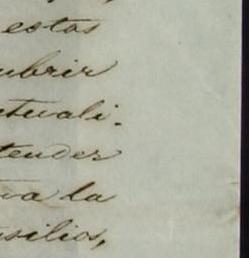 estos
ubrir
tuali-
tender
va la
silios,